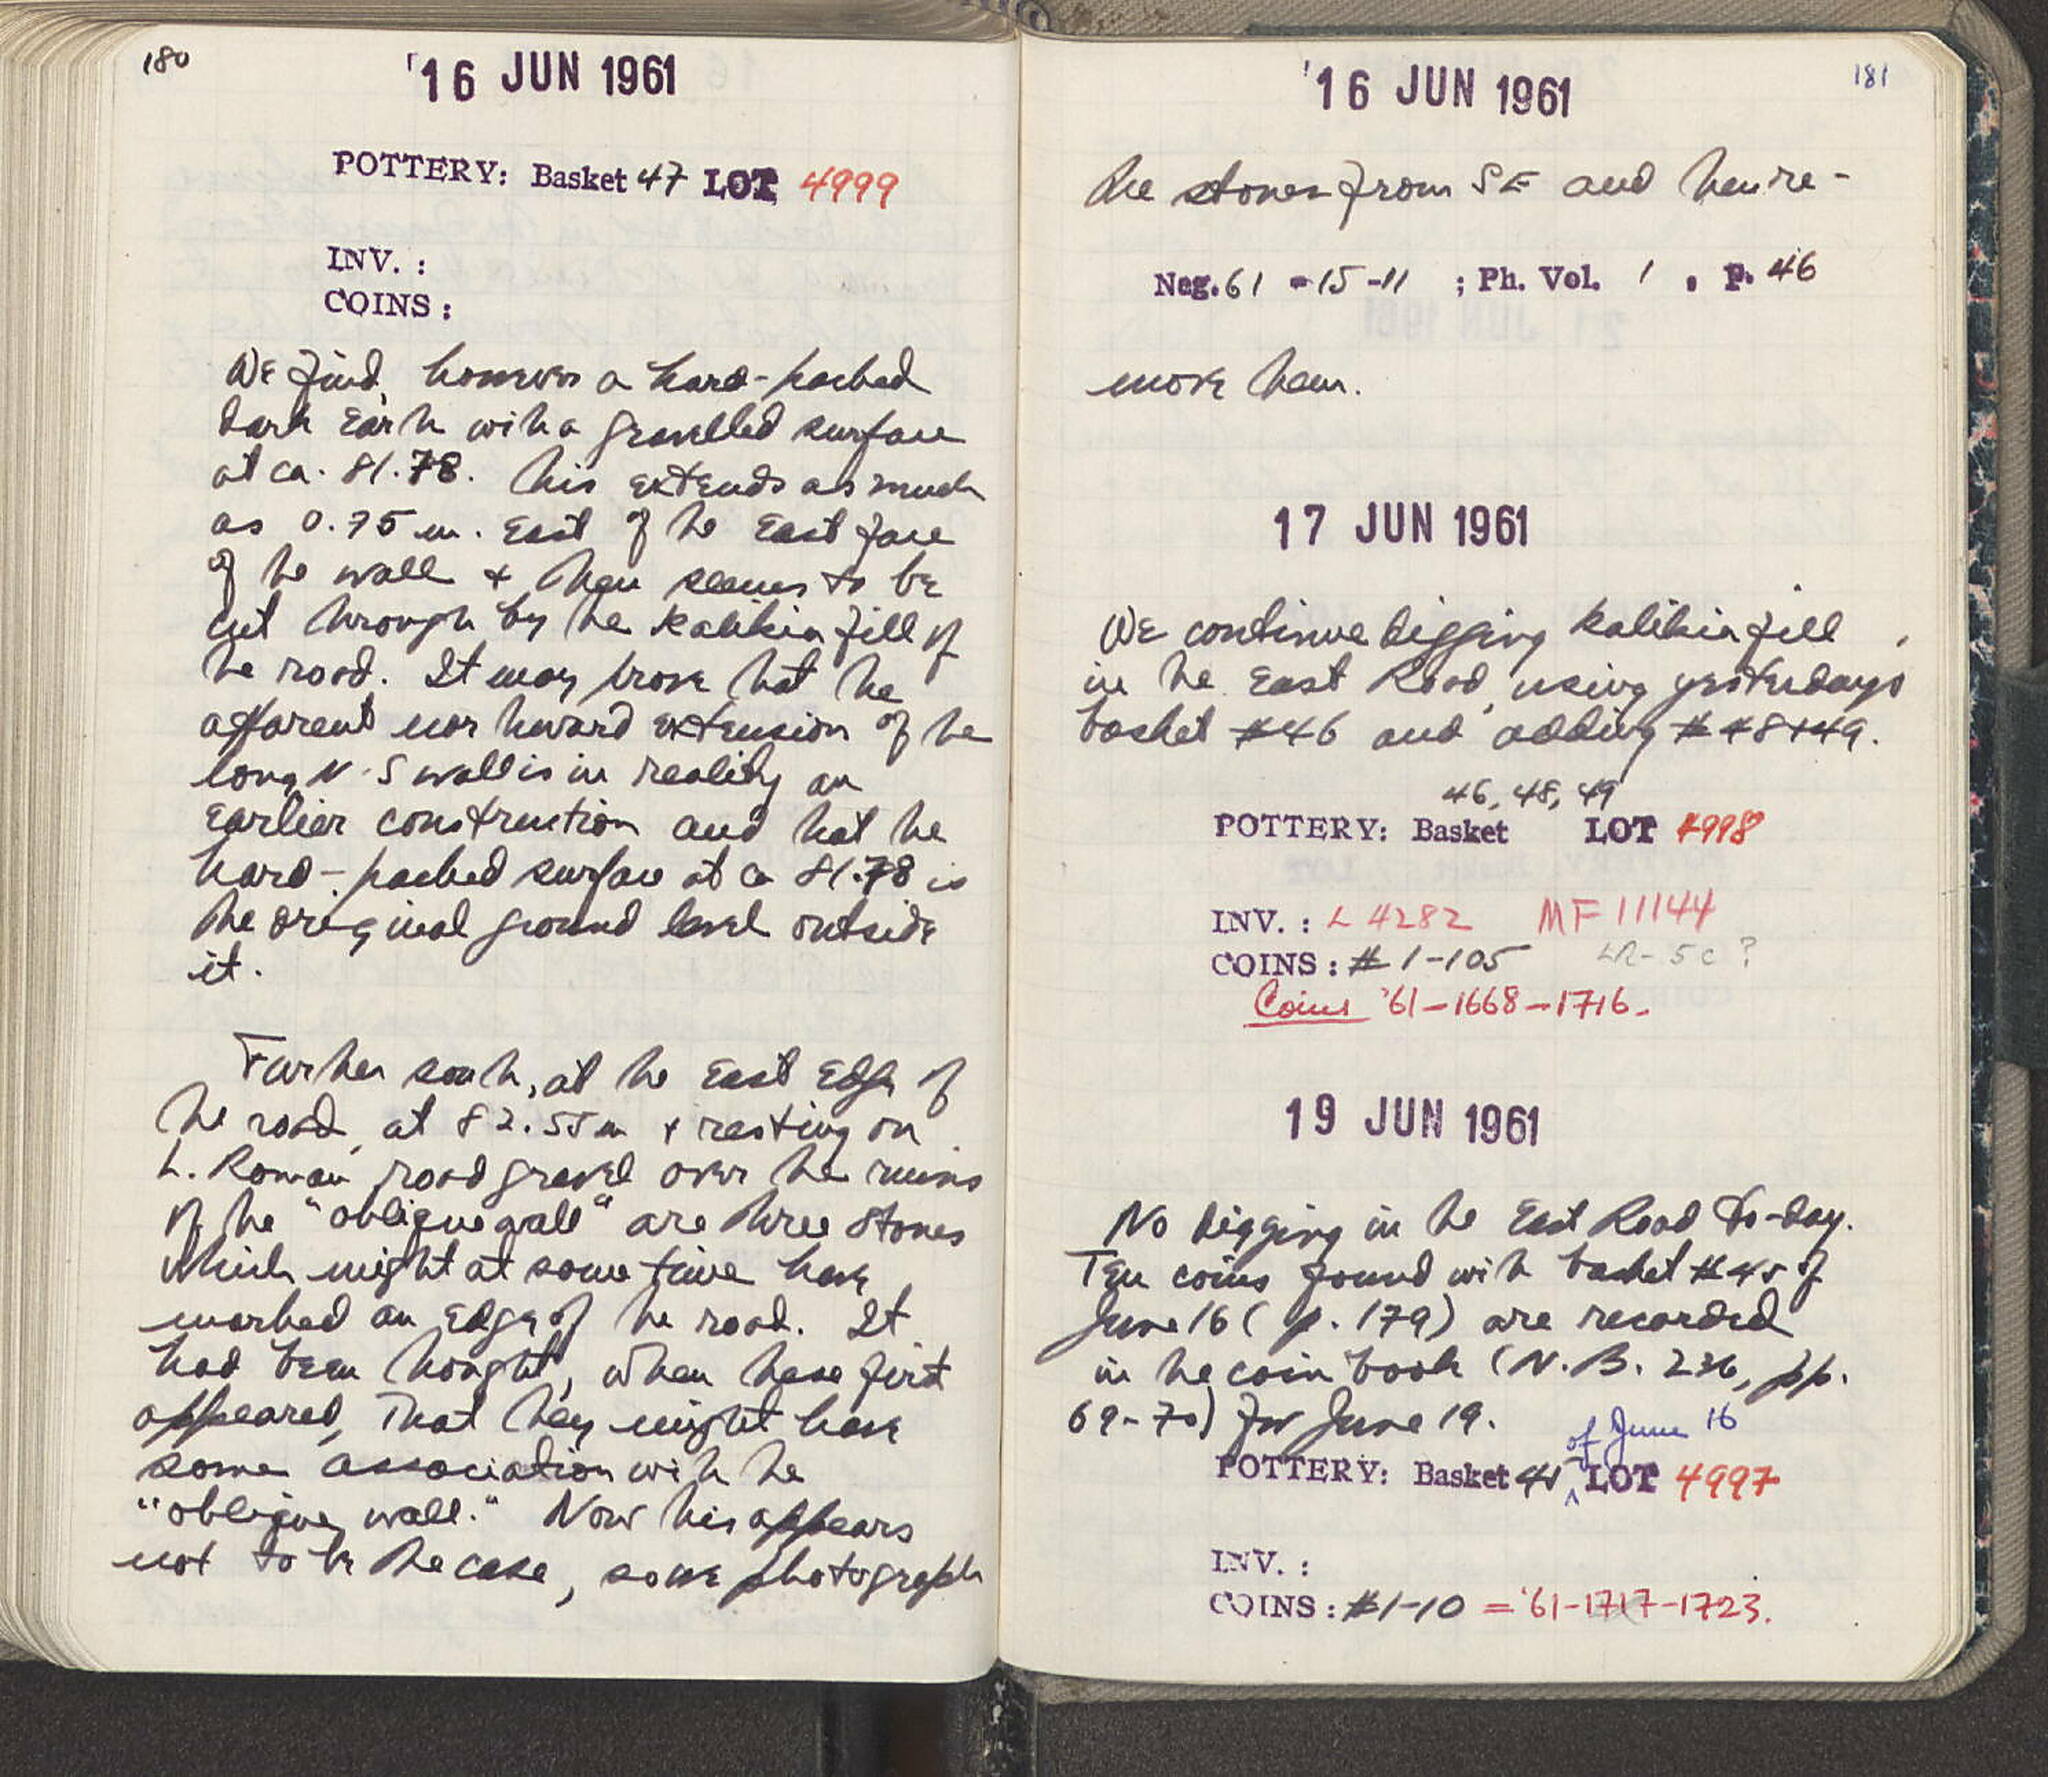 180
16 JUN 1961
POTTERY: Basket 47 LOT 4999
INV. :
COINS :
We find, however a hard-packed
dark earth with a gravelled surface
at ca. 81.78. This extends as much
as 0.75 m. East of the East face
of the wall + then seems to be
cut through by the kalikia fill of
the road. It may prove that the
apparent northward extension of the
long N-S wall is in reality an
earlier construction and that the
hard-packed surface at ca 81.78 is
the original ground level outside
it.
Farther south, at the East Edge of
the road, at 82.55 m + resting on
L. Roman road gravel over the ruins
of the "oblique wall" are three stones
which might at some time have
marked an edge of the road. It
had been thought, when these first
appeared, that they might have
some association with the
"oblique wall." Now this appears
not to be the case, so we photograph
181
16 JUN 1961
the stones from SE and then re-
Neg. 61 - 15 - 11 ; Ph. Vol. 1 , p. 46
move them.
17 JUN 1961
We continue digging kalikia fill
in the East Road, using yesterdays
basket #46 and adding #48+49.
46, 48, 49
POTTERY: Basket LOT 4998
INV. : L 4282 MF 11144
COINS : # 1-105 LR- 5c ?
Coins '61-1668-1716-
19 JUN 1961
No digging in the East Road to-day.
Ten coins found with basket #45 of
June 16 (p. 179) are recorded
in the coin book (N.B. 236, pp.
69-70) for June 19.
of June 16
POTTERY: Basket 45 ^ LOT 4997
INV. :
COINS : #1-10 = '61-1717-1723.